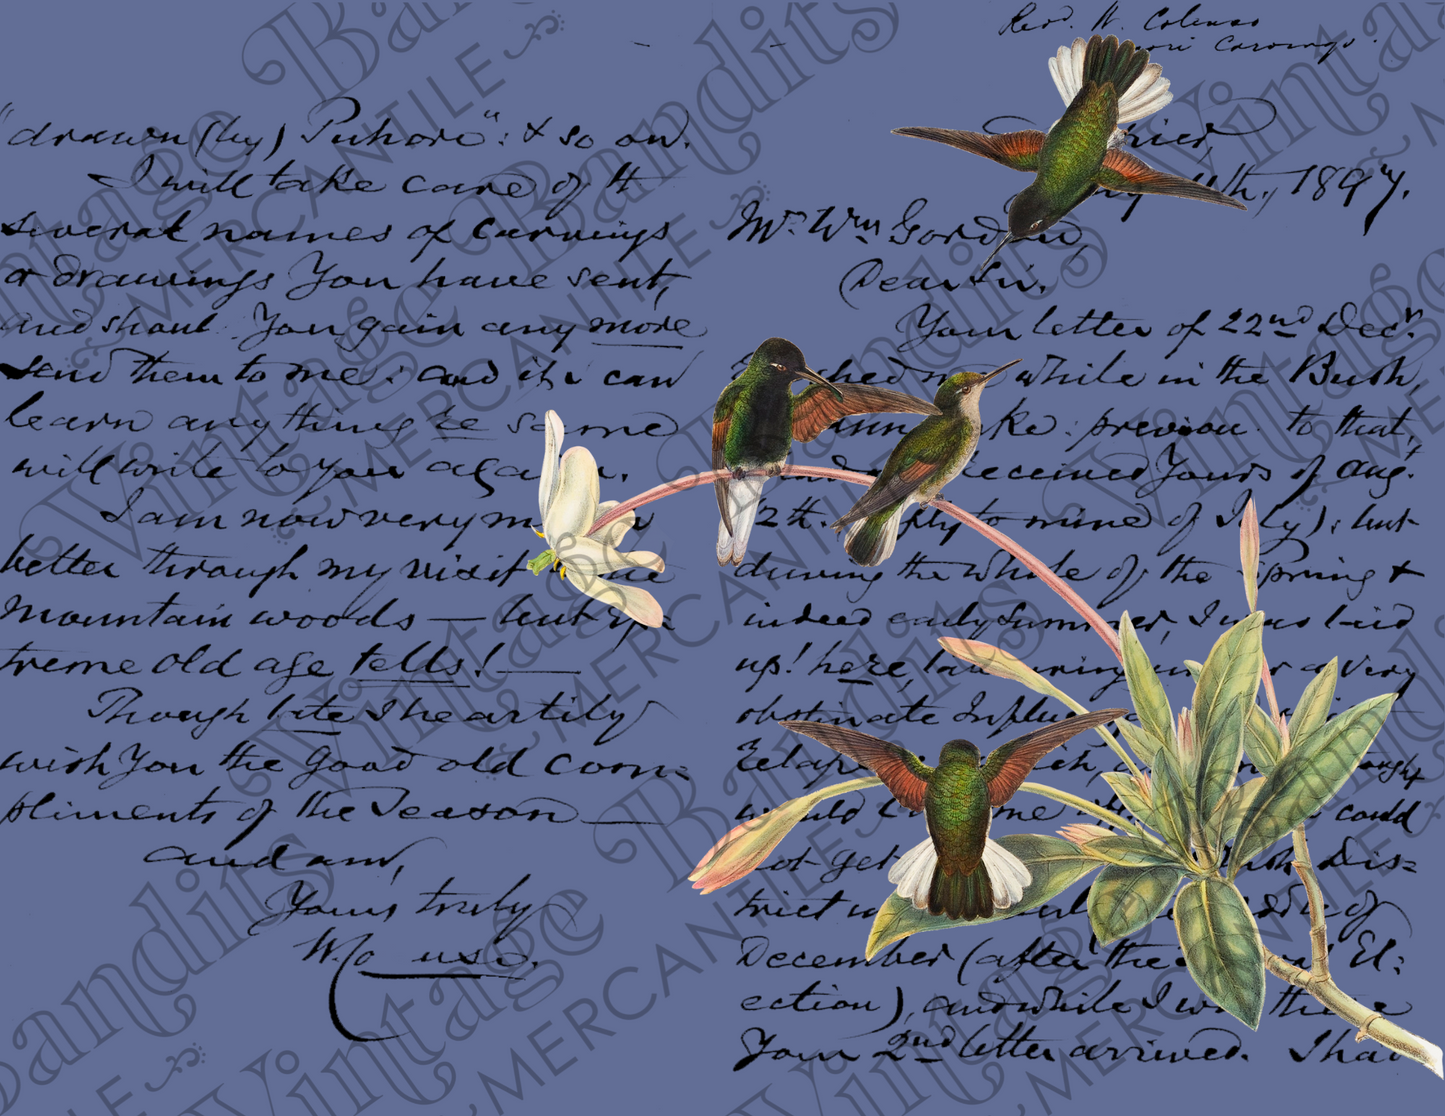 "drawn (by) Puhoro": & so on.
I will take care of it.
several names of carvings
or drawings You have sent,
and shoul You gain any more
send them to me: and if I can
learn anything re same
will write to you again.
I am now very
better through my visit
mountain woods — but
treme old age tells! —
Though late I heartily
wish You the good old com-
pliments of the Season —
and am,
Yours truly
W. Co uso.
Revd. W. Colenso
Carvings.
1897.
Mr. Wm Gordon,
Dear Sir,
Your letter of 22nd Decr.
me while in the Bush,
previous to that,
received Yours of Aug.
12th. to mine of July): but
during the whole of the Spring &
indeed early Summer, I was laid
up! here, very
obstinate
could
not get Bush Dis=
trict of
December (after the El=
ection), and while I
Your 2nd letter arrived. I had
Vintage Bandits
MERCANTILE